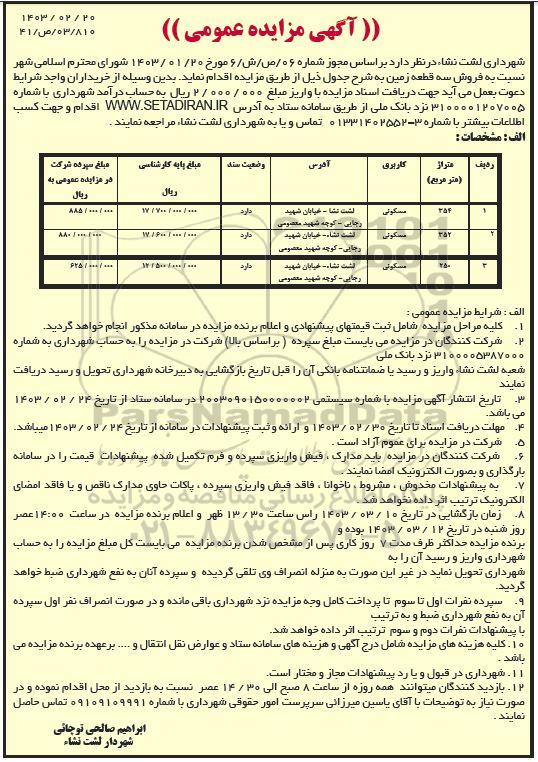 ۱۴۰۳ / ۰۲ / ۲۰
۴۱/ص/۰۳/۸۱۰
(( آگهی مزایده عمومی ))
شهرداری لشت نشاء درنظر دارد بر اساس مجوز شماره ۰۶/ص/ش/۶ مورخ ۱۴۰۳/۰۱/۲۰ شورای محترم اسلامی شهر
نسبت به فروش سه قطعه زمین به شرح جدول ذیل از طریق مزایده اقدام نماید. بدین وسیله از خریداران واجد شرایط
دعوت بعمل می آید جهت دریافت اسناد مزایده با واریز مبلغ ۲/۰۰۰/۰۰۰ ریال به حساب درآمد شهرداری با شماره
۳۱۰۰۰۰۱۲۰۷۰۰۵ نزد بانک ملی از طریق سامانه ستاد به آدرس WWW.SETADIRAN.IR اقدام و جهت کسب
اطلاعات بیشتر با شماره ۳-۰۱۳۳۱۴۰۲۵۵۲ تماس و یا به شهرداری لشت نشاء مراجعه نمایند .
الف : مشخصات :
ردیف متراژ (متر مربع) کاربری آدرس وضعیت سند مبلغ پایه کارشناسی ریال مبلغ سپرده شرکت در مزایده عمومی به ریال
۱ ۳۵۴ مسکونی لشت نشا - خیابان شهید رجایی - کوچه شهید معصومی دارد ۱۷/۷۰۰/۰۰۰/۰۰۰ ۸۸۵/۰۰۰/۰۰۰
۲ ۳۵۲ مسکونی لشت نشاء- خیابان شهید رجایی- کوچه شهید معصومی دارد ۱۷/۶۰۰/۰۰۰/۰۰۰ ۸۸۰/۰۰۰/۰۰۰
۳ ۲۵۰ مسکونی لشت نشاء- خیابان شهید رجایی- کوچه شهید معصومی دارد ۱۲/۵۰۰/۰۰۰/۰۰۰ ۶۲۵/۰۰۰/۰۰۰
الف : شرایط مزایده عمومی :
۱. کلیه مراحل مزایده شامل ثبت قیمتهای پیشنهادی و اعلام برنده مزایده در سامانه مذکور انجام خواهد گردید.
۲. شرکت کنندگان در مزایده می بایست مبلغ سپرده ( براساس بالا) شرکت در مزایده را به حساب شهرداری به شماره
۳۱۰۰۰۰۵۳۸۷۰۰۰ نزد بانک ملی
شعبه لشت نشاء واریز و رسید یا ضمانتنامه بانکی آن را قبل تاریخ بازگشایی به دبیرخانه شهرداری تحویل و رسید دریافت
نمایند
۳. تاریخ انتشار آگهی مزایده با شماره سیستمی ۲۰۰۳۰۹۰۱۵۰۰۰۰۰۰۲ در سامانه ستاد از تاریخ ۲۴ / ۰۲ / ۱۴۰۳
می باشد.
۴. مهلت دریافت اسناد تا تاریخ ۳۰ / ۰۲ / ۱۴۰۳ و ارائه و ثبت پیشنهادات در سامانه از تاریخ ۲۴ / ۰۲ / ۱۴۰۳میباشد.
۵. شرکت در مزایده برای عموم آزاد است .
۶. شرکت کنندگان در مزایده باید مدارک ، فیش واریزی سپرده و فرم تکمیل شده پیشنهادات قیمت را در سامانه
بارگذاری و بصورت الکترونیک امضا نمایند .
۷. به پیشنهادات مخدوش ، مشروط ، ناخوانا ، فاقد فیش واریزی سپرده ، پاکات حاوی مدارک ناقص و یا فاقد امضای
الکترونیک ترتیب اثر داده نخواهد شد .
۸. زمان بازگشایی در تاریخ ۱۰ / ۰۳ / ۱۴۰۳ راس ساعت ۳۰ / ۱۳ ظهر و اعلام برنده مزایده در ساعت ۱۴:۰۰عصر
روز شنبه در تاریخ ۱۲ / ۰۳ / ۱۴۰۳ بوده و
برنده مزایده حداکثر ظرف مدت ۷ روز کاری پس از مشخص شدن برنده مزایده می بایست کل مبلغ مزایده را به حساب
شهرداری واریز و رسید آن را به
شهرداری تحویل نماید در غیر این صورت به منزله انصراف وی تلقی گردیده و سپرده آنان به نفع شهرداری ضبط خواهد
گردید.
۹. سپرده نفرات اول تا سوم تا پرداخت کامل وجه مزایده نزد شهرداری باقی مانده و در صورت انصراف نفر اول سپرده
آن به نفع شهرداری ضبط و به ترتیب
با پیشنهادات نفرات دوم و سوم ترتیب اثر داده خواهد شد.
۱۰. کلیه هزینه های مزایده شامل درج آگهی و هزینه های سامانه ستاد و عوارض نقل انتقال و .... برعهده برنده مزایده می
باشد .
۱۱. شهرداری در قبول و یا رد پیشنهادات مجاز و مختار است.
۱۲. بازدید کنندگان میتوانند همه روزه از ساعت ۸ صبح الی ۳۰ / ۱۴ عصر نسبت به بازدید از محل اقدام نموده و در
صورت نیاز به توضیحات با آقای یاسین میرزائی سرپرست امور حقوقی شهرداری با شماره ۰۹۱۰۹۱۰۹۹۹۱ تماس حاصل
نمایند .
ابراهیم صالحی توچائی
شهردار لشت نشاء
ParsNamadData
۰۲۱-۸۸۳۴۹۶۷۰